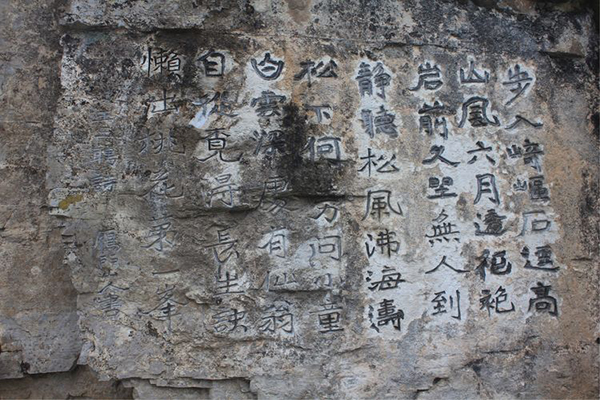 步入崎嶇石逕高
山風六月透袍
岩前久坐無人到
静聽松風沸海濤
松下何方问小童
白雲深處有仙翁
自從覓得長生訣
懶出桃花第一峯
人書